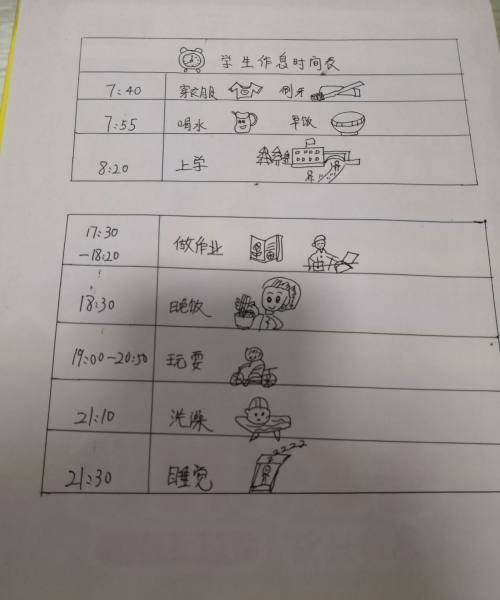 学生作息时间表
7:40 穿衣服 刷牙
7:55 喝水 早饭
8:20 上学
17:30
-18:20 做作业
18:30 晚饭
19:00-20:50 玩耍
21:10 洗澡
21:30 睡觉 zzzz